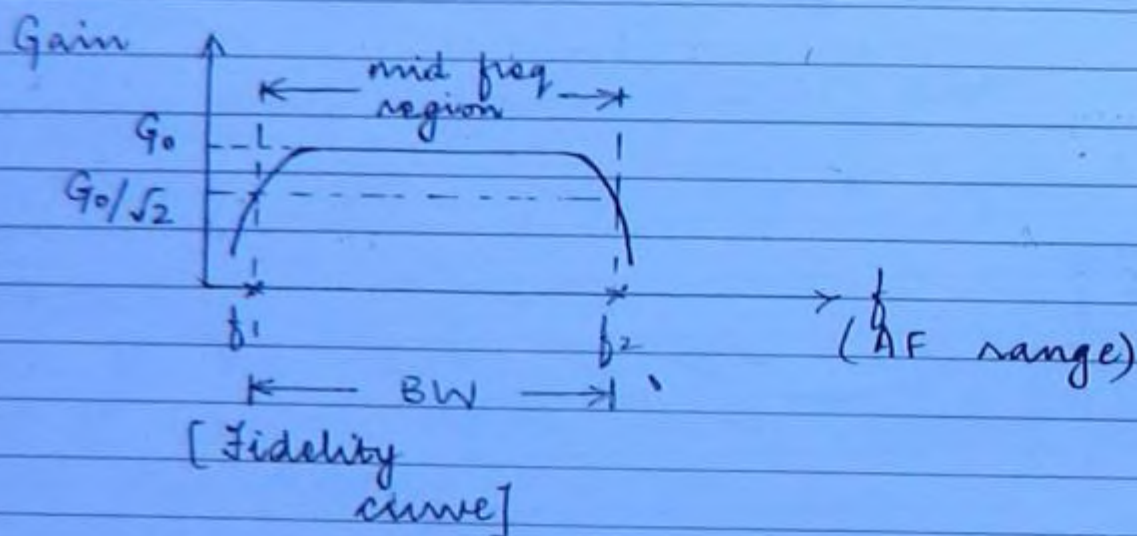 Gain
mid freq
region
G₀
G₀/√2
f1
f2
f
(AF range)
BW
[Fidelity
curve]